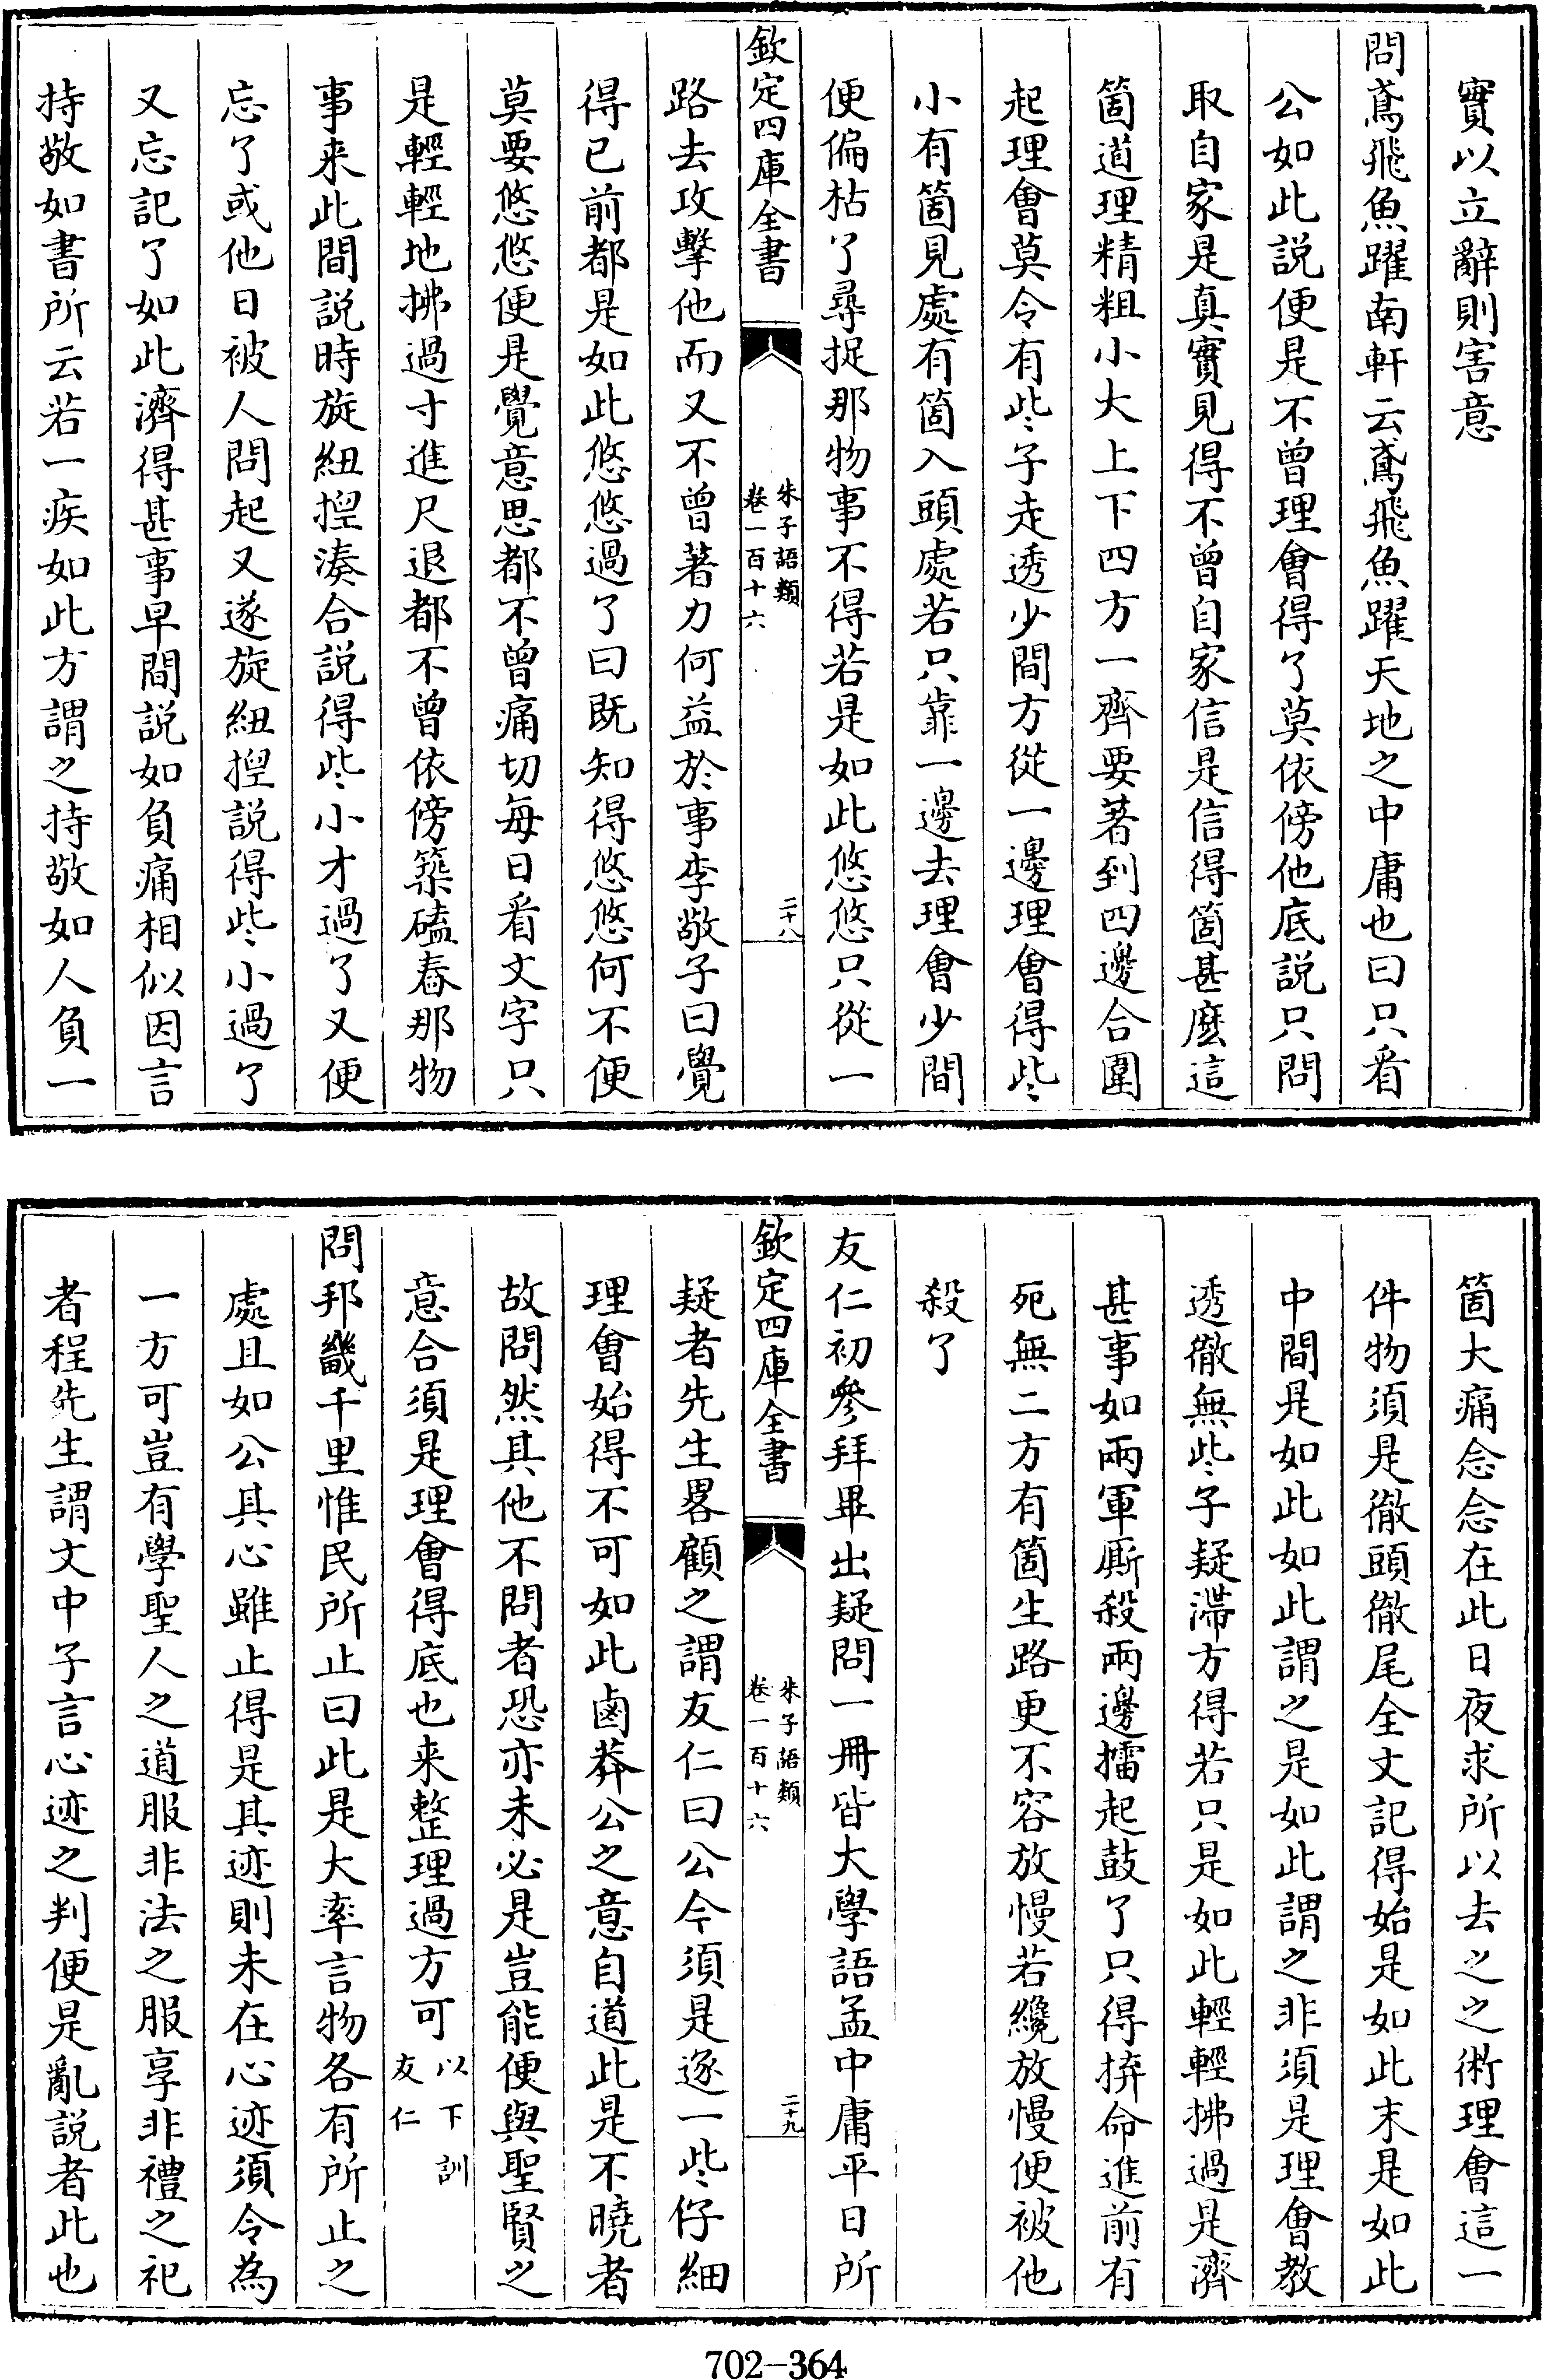 實以立辭則害意
問鳶飛魚躍南軒云鳶飛魚躍天地之中庸也曰只看
公如此説便是不曾理會得了莫依傍他底説只問
取自家是真實見得不曾自家信是信得箇甚麽這
箇道理精粗小大上下四方一齊要著到四邊合圍
起理會莫令有些子走透少間方從一邊理會得些
小有箇見處有箇入頭處若只靠一邊去理會少間
便偏枯了尋捉那物事不得若是如此悠悠只從一
欽定四庫全書
朱子語類
卷一百十六
二十八
路去攻擊他而又不曾著力何益於事李敬子曰覺
得已前都是如此悠悠過了曰既知得悠悠何不便
莫要悠悠便是覺意思都不曾痛切每日看文字只
是輕輕地拂過寸進尺退都不曾依傍築磕舂那物
事来此間説時旋紐揑湊合説得些小才過了又便
忘了或他日被人問起又遂旋紐揑説得些小過了
又忘記了如此濟得甚事早間説如負痛相似因言
持敬如書所云若一疾如此方謂之持敬如人負一
箇大痛念念在此日夜求所以去之之術理會這一
件物須是徹頭徹尾全文記得始是如此末是如此
中間是如此如此謂之是如此謂之非須是理會教
透徹無些子疑滯方得若只是如此輕輕拂過是濟
甚事如兩軍厮殺兩邊擂起鼓了只得拚命進前有
死無二方有箇生路更不容放慢若纔放慢便被他
殺了
友仁初參拜畢出疑問一冊皆大學語孟中庸平日所
欽定四庫全書
朱子語類
卷一百十六
二十九
疑者先生畧顧之謂友仁曰公今須是逐一些仔細
理會始得不可如此鹵莽公之意自道此是不曉者
故問然其他不問者恐亦未必是豈能便與聖賢之
意合須是理會得底也来整理過方可以下訓友仁
問邦畿千里惟民所止曰此是大率言物各有所止之
處且如公其心雖止得是其迹則未在心迹須令為
一方可豈有學聖人之道服非法之服享非禮之祀
者程先生謂文中子言心迹之判便是亂説者此也
702-364